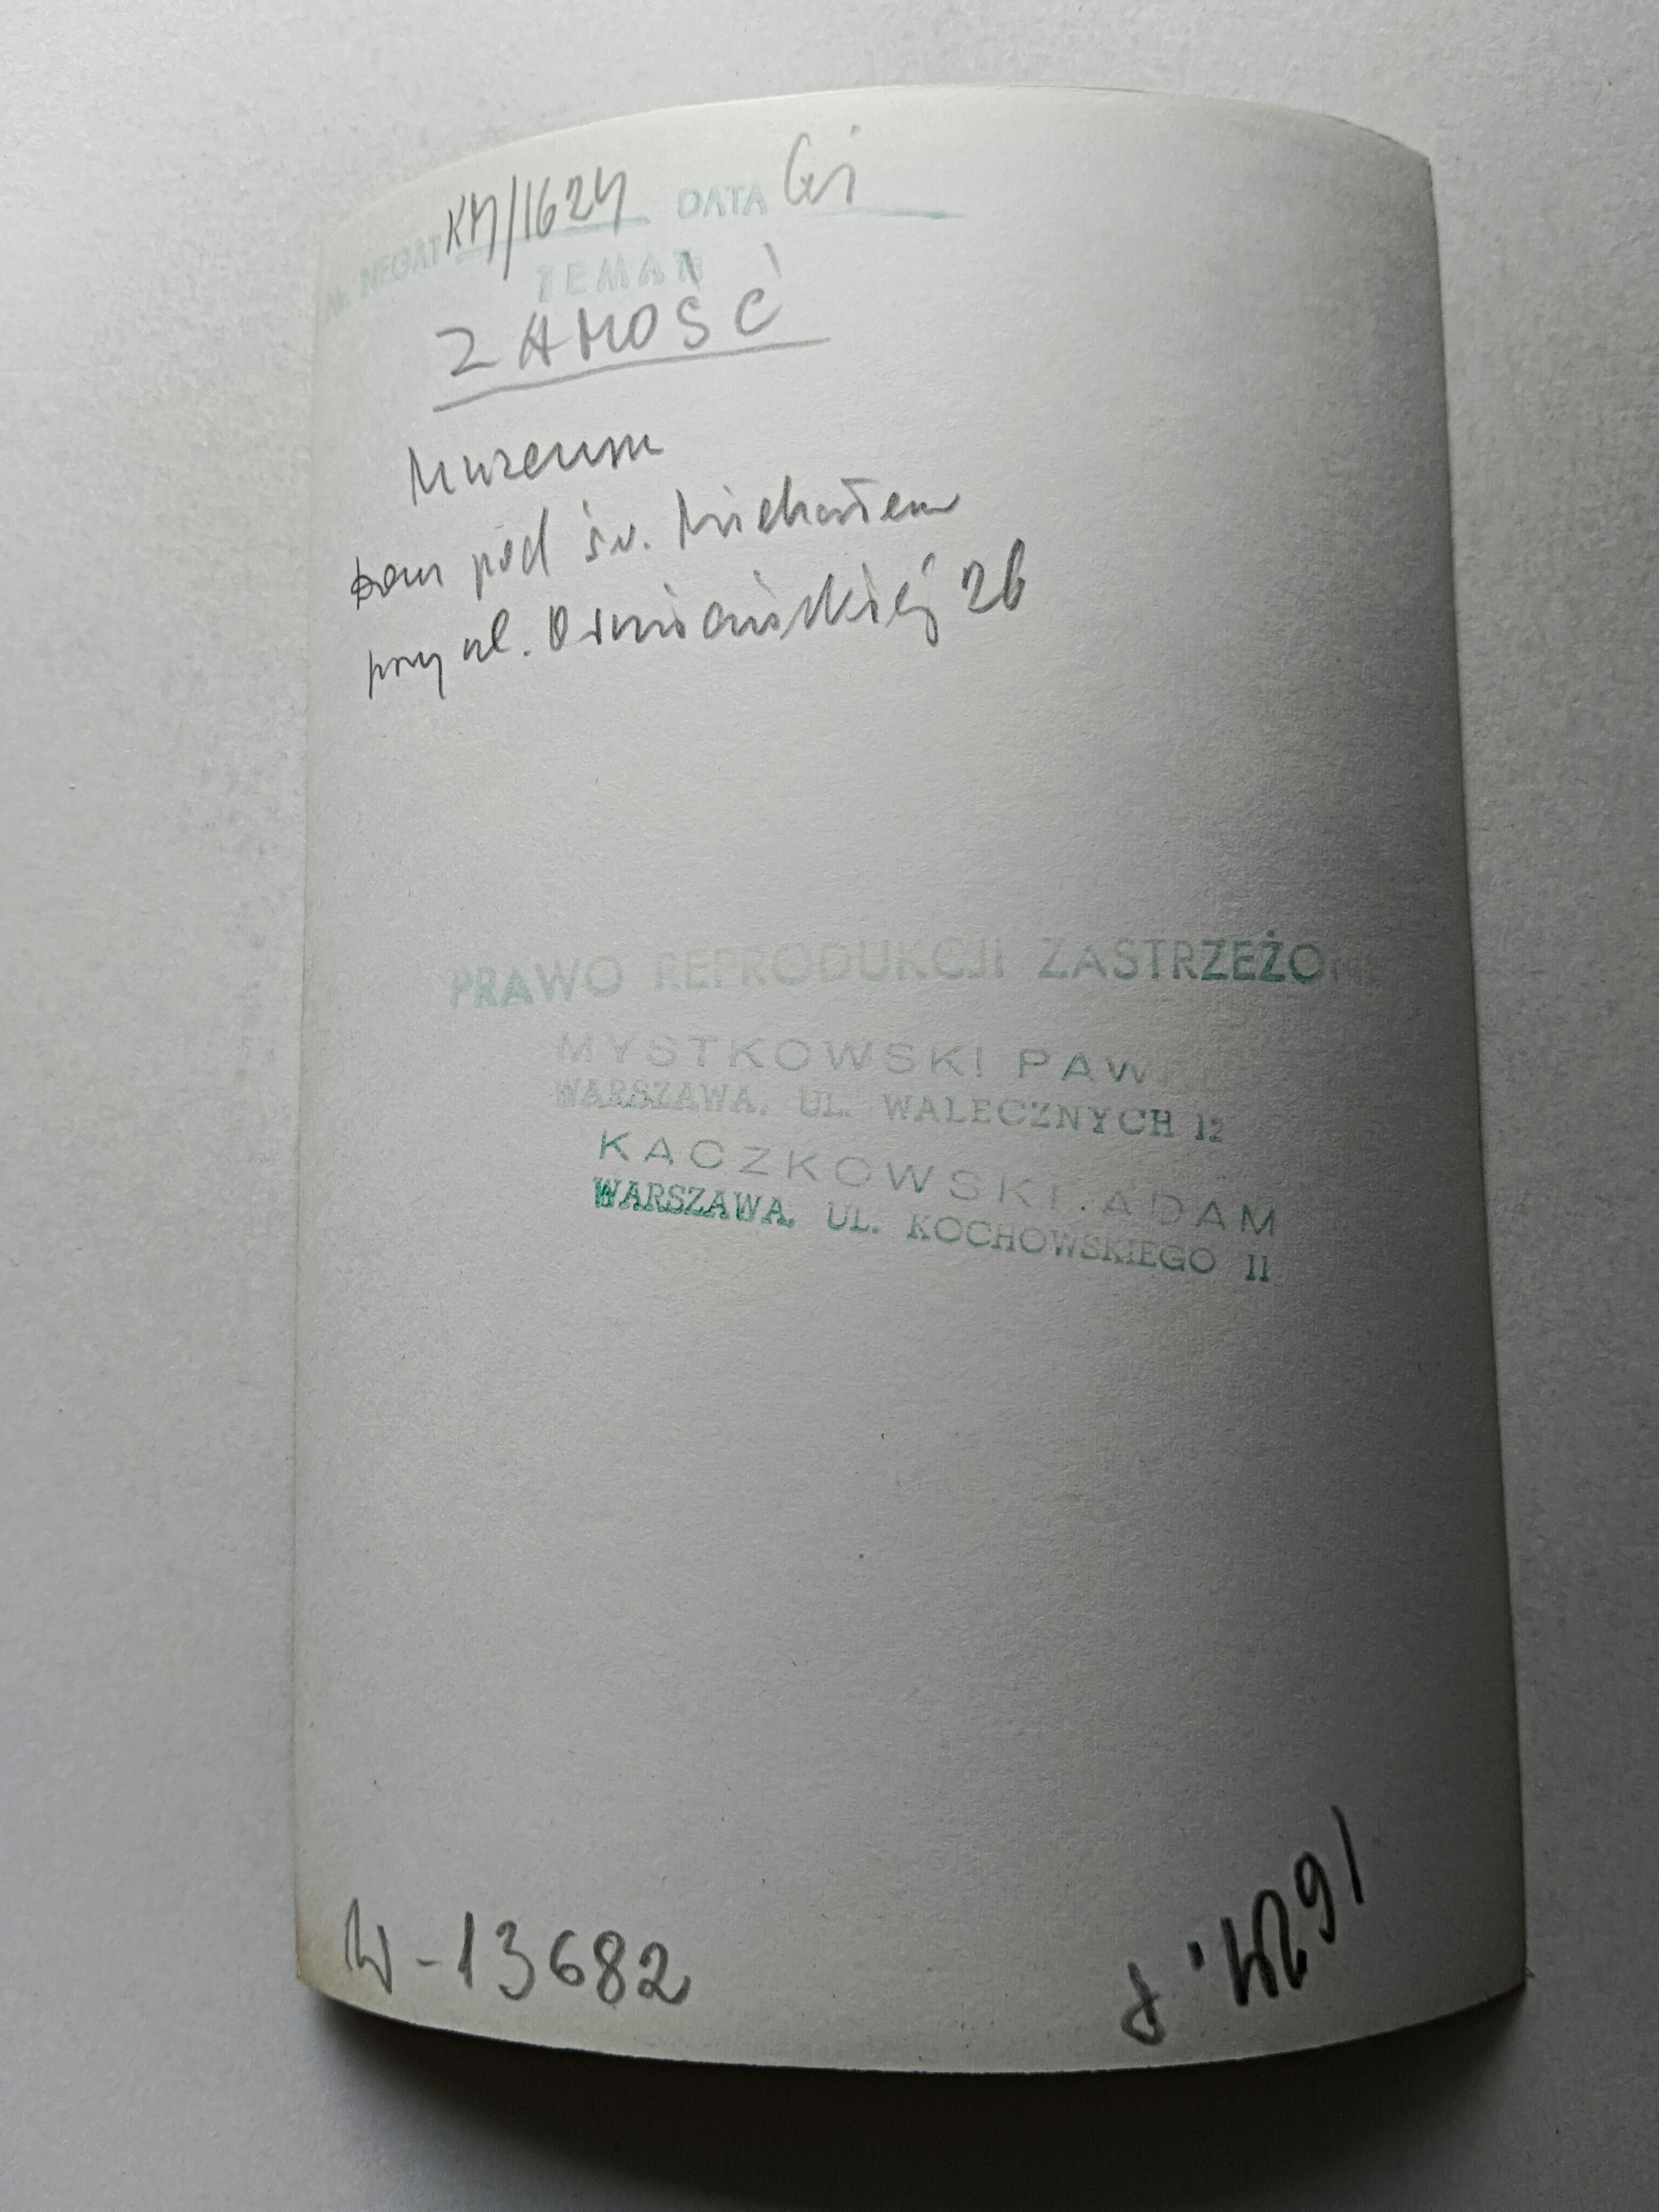 NEGAT KM/1624 DATA
TEMAT
ZAMOŚĆ
Muzeum
Dom pod św. Michałem
przy ul. Ormiańskiej 26
PRAWO REPRODUKCJI ZASTRZEŻO
MYSTKOWSKI PAW
WARSZAWA, UL. WALECZNYCH 12
KACZKOWSKI ADAM
WARSZAWA, UL. KOCHOWSKIEGO 11
W-13682